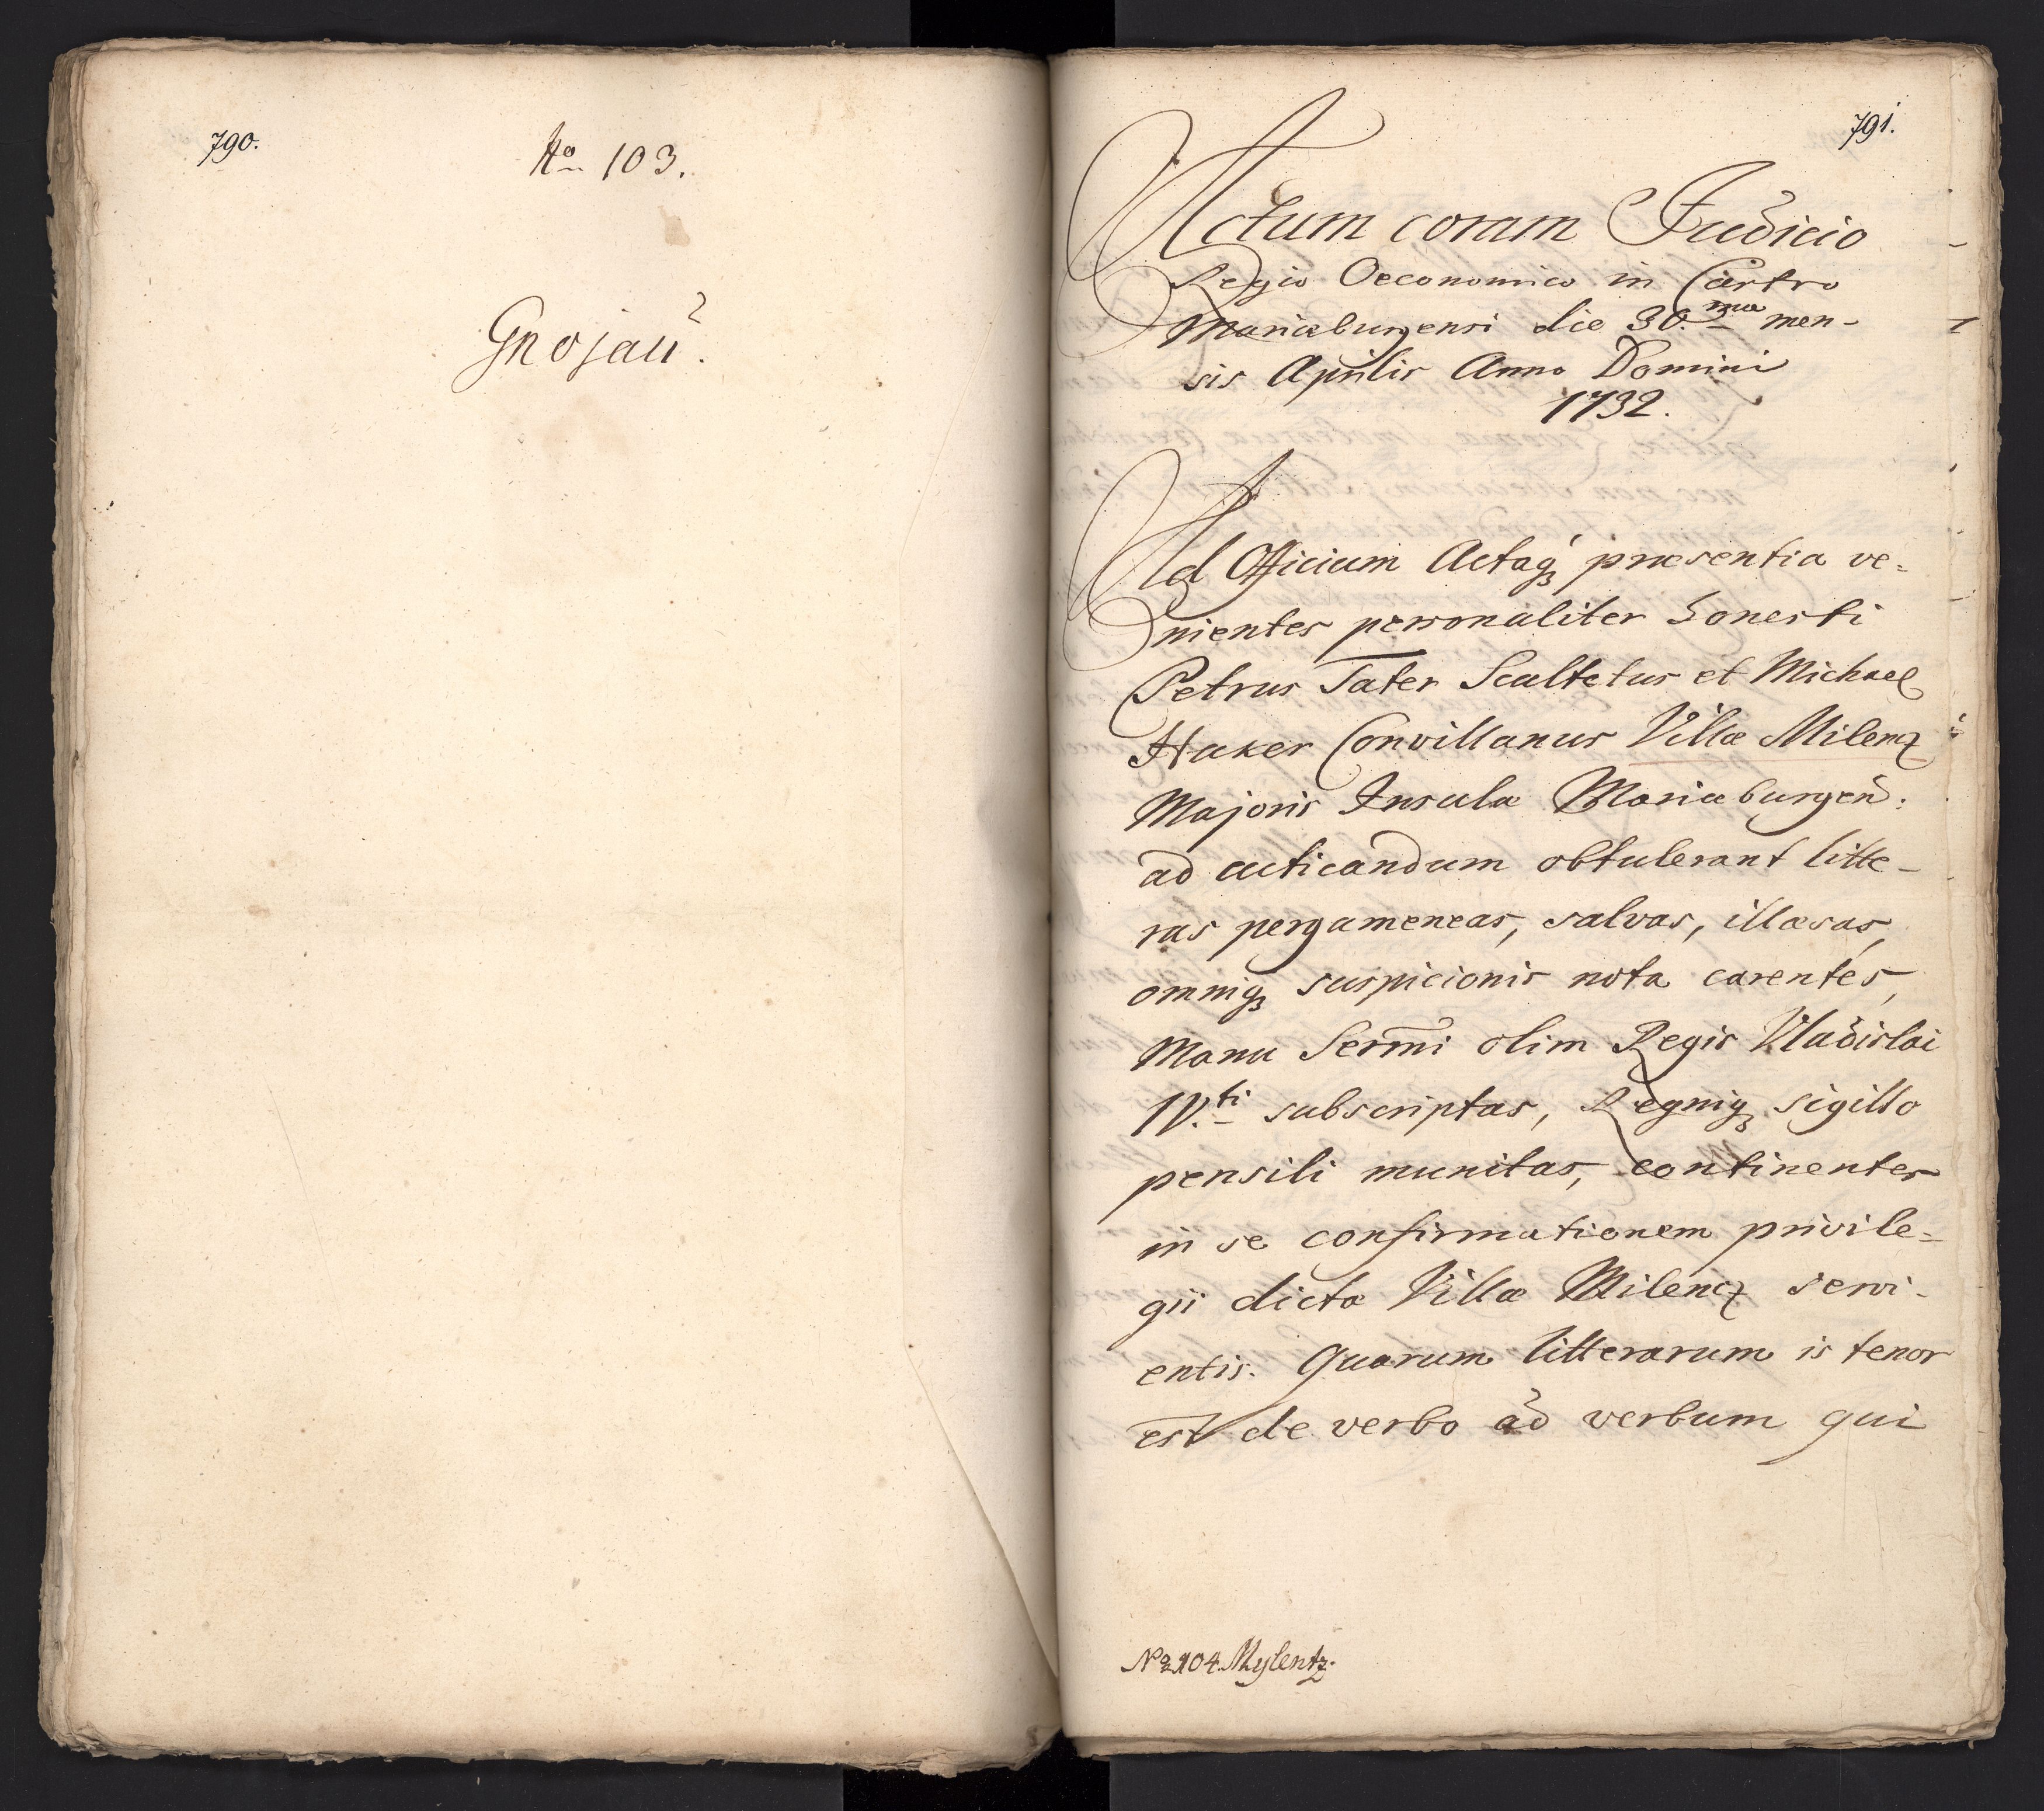 790.
No 103.
Gnojau.
791.
Actum coram Judicio
Regio Oeconomico in Castro
Mariæburgensi die 30.ma men-
sis Aprilis Anno Domini
1732.
Ad Officium Actaq₃ præsentia ve=
nientes personaliter honesti
Petrus Tater Scultetus et Michael
Haker Convillanus Villæ Milencz
Majoris Insulæ Mariæburgen:
ad acticandum obtulerant litte-
ras pergameneas, salvas, illæsas,
omniq₃ suspicionis nota carentes,
Manu Sermi olim Regis Vladislai
IV.ti subscriptas, Regniq₃ sigillo
pensili munitas, continentes
in se confirmationem privile=
gii dictæ Villæ Milencz servi-
entis. Quarum litterarum is tenor
est de verbo ad verbum qui
No 104 Mylentz.